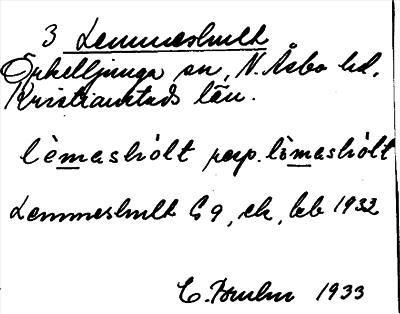 3 Lemmeshult
Örkelljunga sn, N. Åsbo hd.
Kristianstads län.
lèmashólt resp. lèmashólt
Lemmeshult G 9, ek, beb 1932
1933